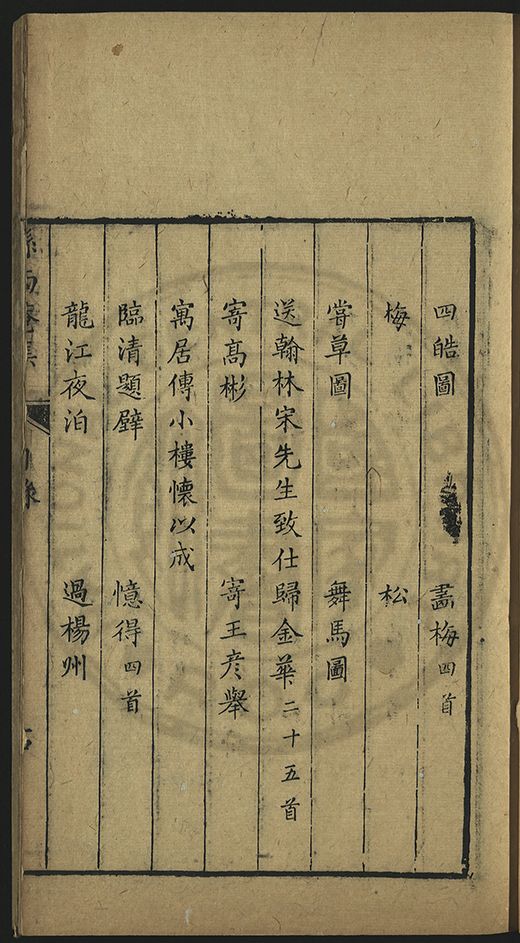 四皓圖 畫梅四首
梅 松
嘗草圖 舞馬圖
送翰林宋先生致仕歸金華二十五首
寄高彬 寄王彥舉
寓居傳小樓懷以成
臨清題壁 憶得四首
龍江夜泊 過楊州